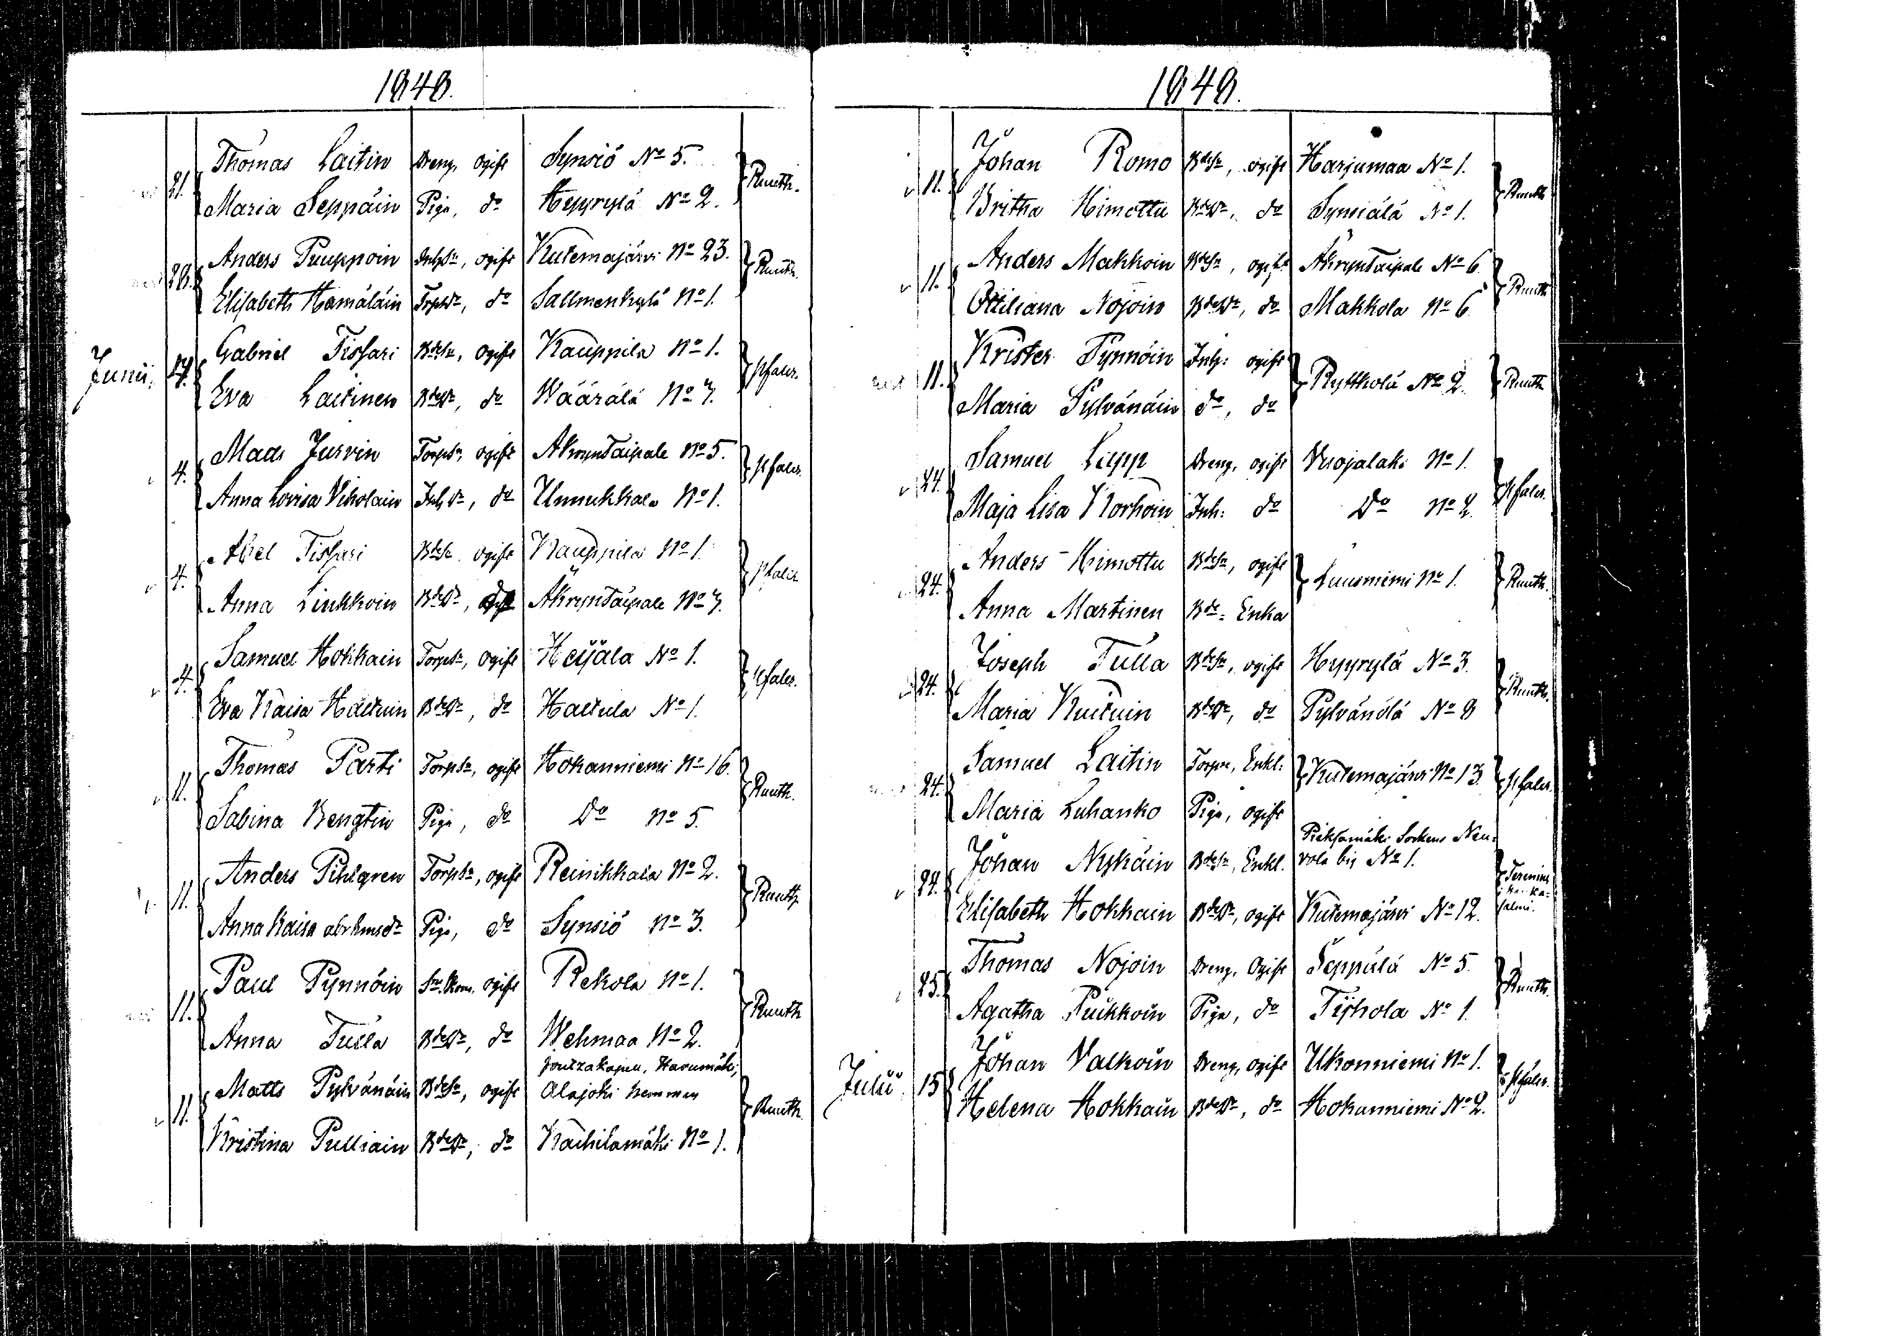 1848.
21. Thomas Laitin Dreng, ogift Synsiö No 5. Ruuth.
Maria Seppäin Piga, do Hyyrylä No 2.
28. Anders Puuppoin InhSn, ogift Kutemajärvi No 23. Ruuth.
Elisabeth Hämäläin TorpDr, do Sallmenkylä No 1.
Junii, 24. Gabriel Tissari BdeSn, ogift Kauppila No 1. Pfaler.
Eva Laitinen BdeDr, do Wäärälä No 7.
4. Mads Jurvin TorpSn, ogift Äkryntaipale No 5. Pfaler.
Anna Lovisa Viholain InhDr, do Unnukkala No 1.
4. Abel Tissari BdeSn ogift Kauppila No 1. Pfaler
Anna Linkkoin BdeDr, Äkryntaipale No 7.
4. Samuel Hokkain TorpSn, ogift Heijälä No 1. Pfaler.
Eva Kaisa Haltuin BdeDr, do Haltula No 1.
11. Thomas Parti TorpSn, ogift Hokanniemi No 16. Ruuth.
Sabina Bengtin Piga, do Do No 5.
11. Anders Pihlgren TorpSn, ogift Reinikkala No 2. Ruuth
Anna Kaisa abrhmsdr Piga, do Synsiö No 3.
11. Paul Pynnöin ogift Rekola No 1. Ruuth
Anna Tulla BdeDr, do Wehmaa No 2.
Joutza Kapell, Havumäki,
11. Matts Pylvänäin BdeSn, ogift Alajoki hemman Ruuth
Kristina Pulliain BdeDr, do Kaihilamäki No 1.
1848.
11. Johan Romo BdeSn, ogift Harjumaa No 1. Ruuth
Britha Himottu BdeDr, do Synsiälä No 1.
11. Anders Makkoin BdeSn, ogift Äkryntaipale No 6. Ruuth
Ottiliana Nojoin BdeDr, do Makkola No 6.
11. Krister Pynnöin Inh: ogift Ryttkölä No 2. Ruuth
Maria Pylvänäin do, do
24. Samuel Lipp Dreng, ogift Vuojalaki No 1. Pfaler.
Maja Lisa Korhoin Inh: do Do No 2
24. Anders Himottu BdeSn, ogift Luusniemi No 1. Ruuth.
Anna Martinen Bde: Enka
24. Joseph Tulla BdeSn, ogift Hyyrylä No 3. Ruuth.
Maria Kuituin BdeDr, do Pylvänälä No 8
24. Samuel Laitin Torpn, Enkl: Kutemajärvi No 13. Pfaler.
Maria Luhanko Piga, ogift
Pieksämäki Sockens Neu-
24. Johan Nykäin BdeSn, Enkl. vola by No 1.
Elisabeth Hokkain BdeDr, ogift Kutemajärvi No 12.
25. Thomas Nojoin Dreng, Ogift Seppälä No 5. Ruuth.
Agatha Puikkoin Piga, do Tyyhola No 1.
Julii, 15 Johan Valkoin Dreng, ogift Ukonniemi No 1. Pfaler.
Helena Hokkain BdeDr, do Hokanniemi No 2.